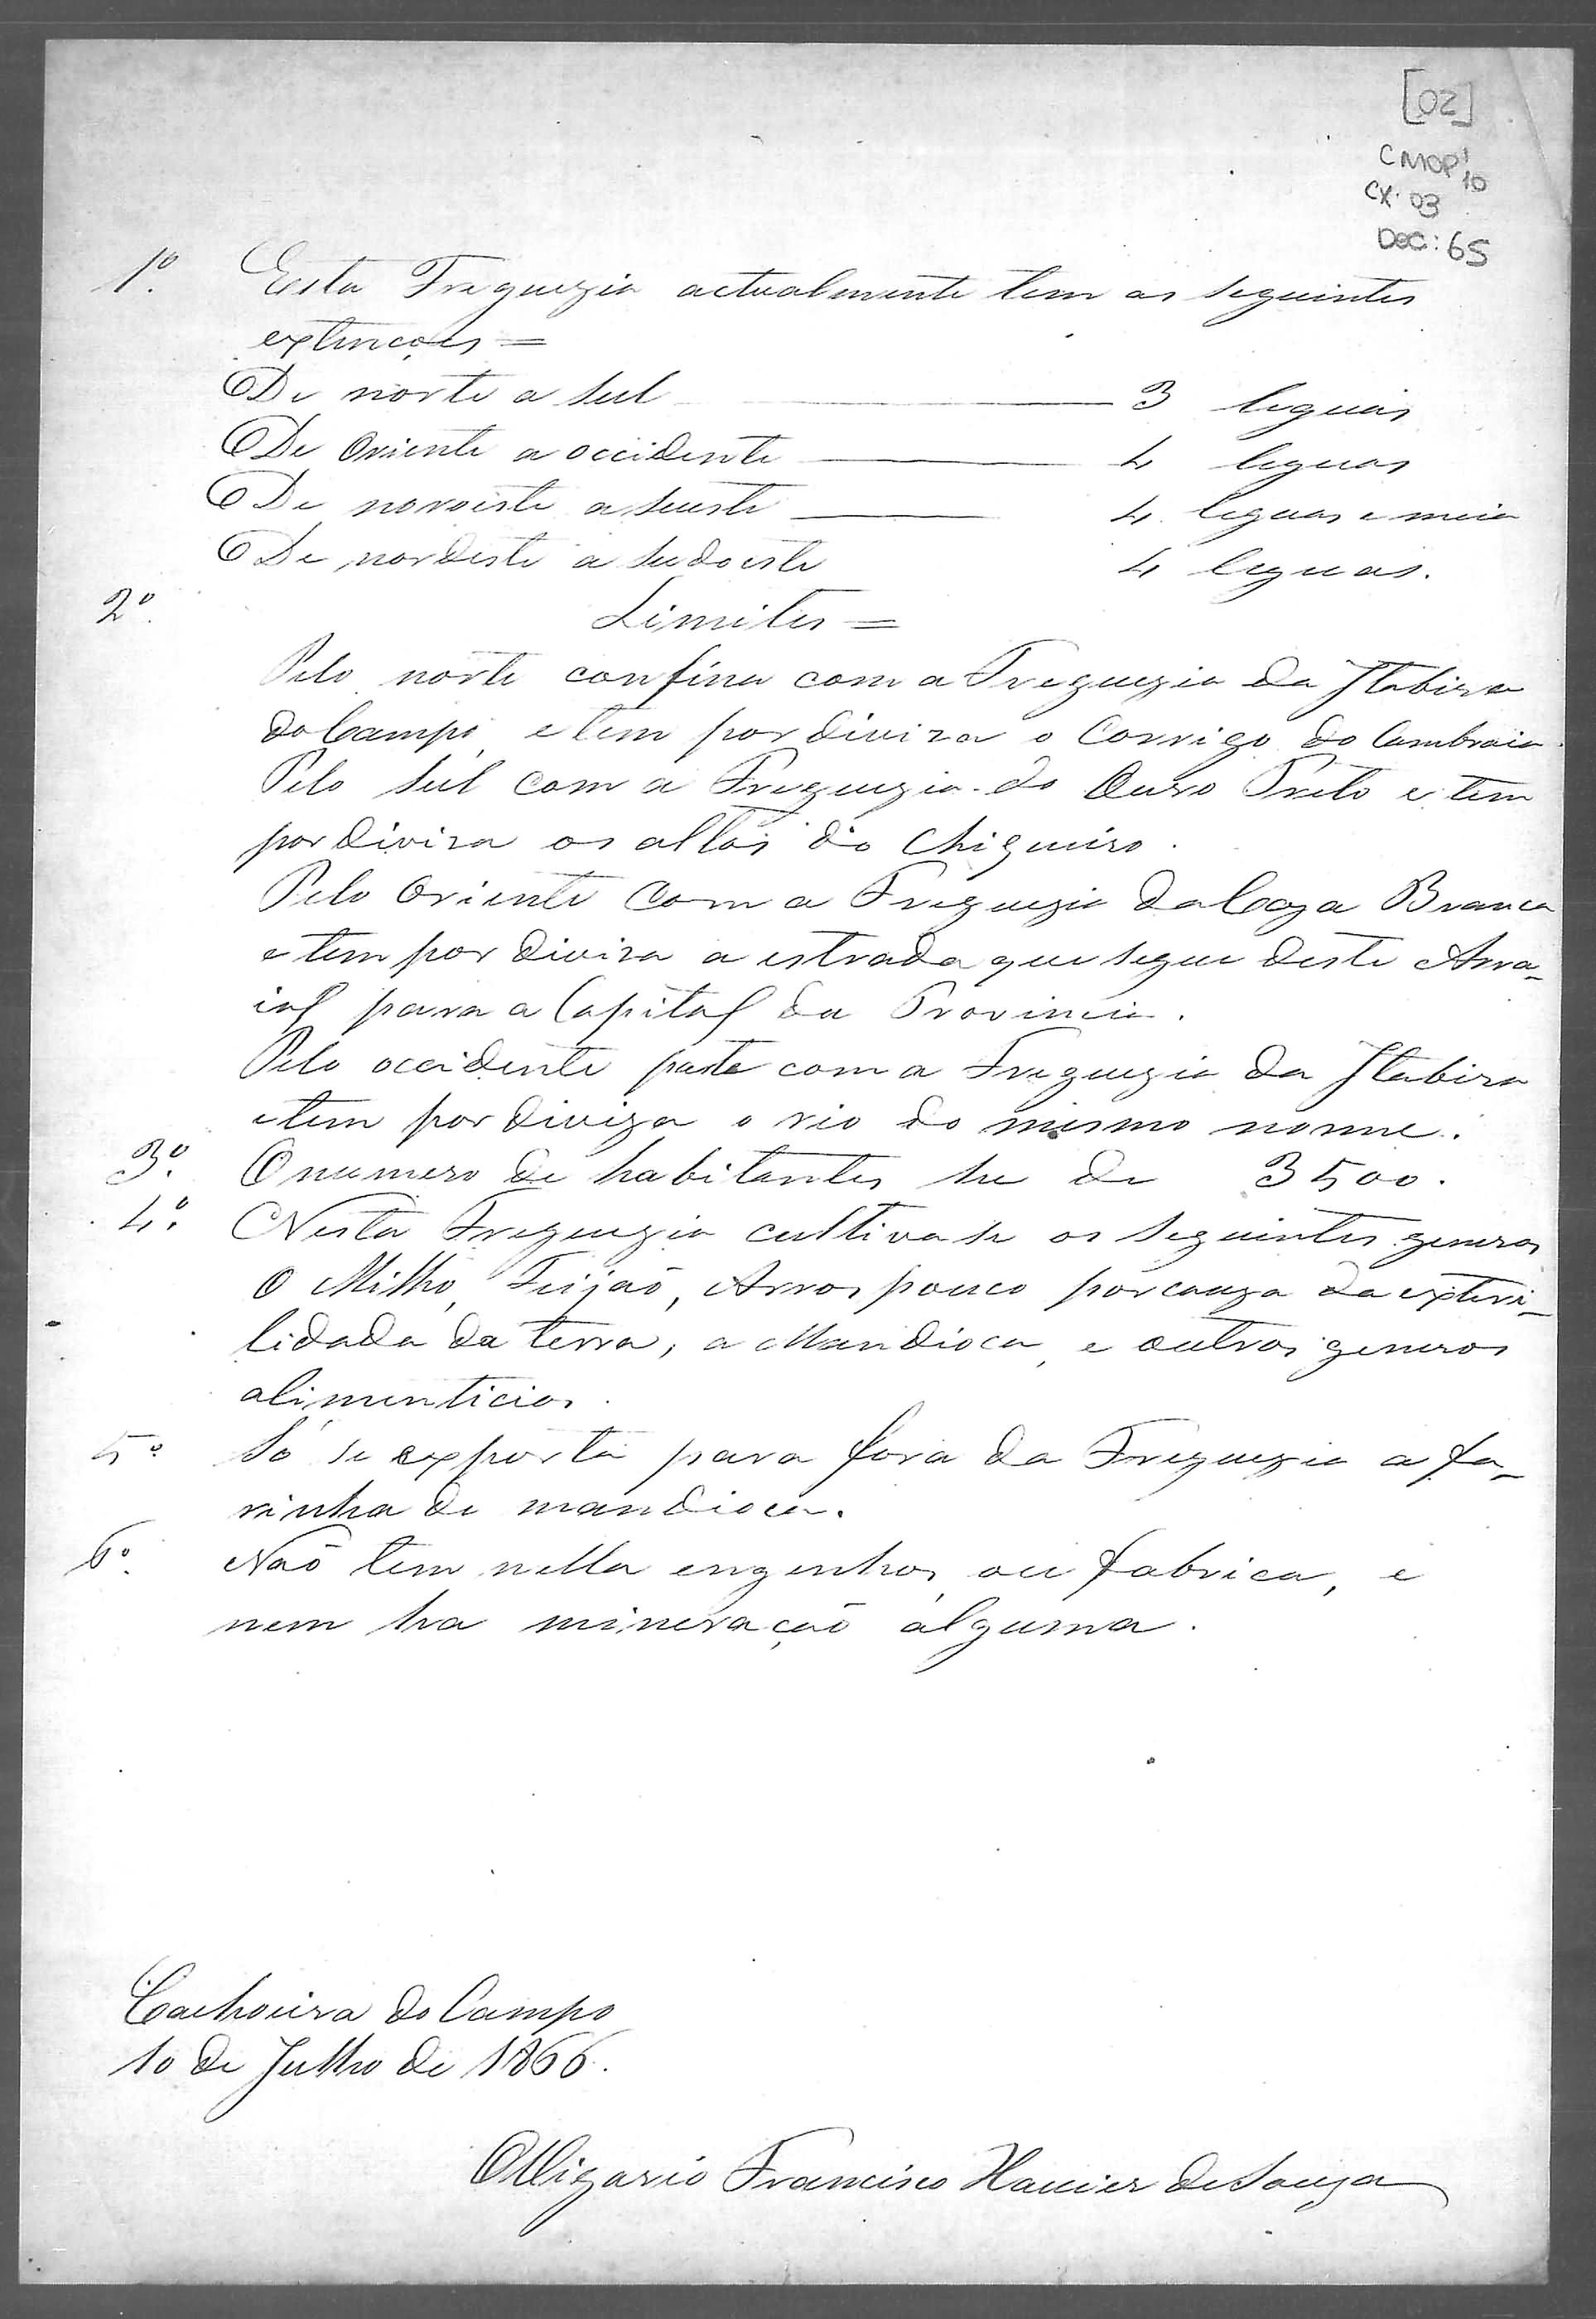 [02]
CMOP 1/10
CX: 03
DOC: 65
1º. Esta Freguezia actualmente tem as seguintes
extencoẽs =
De norte a Sul 3 leguas
De Oriente a occidente 4 leguas
De noroeste a Sueste 4 leguas e meia
De nordeste a Sudoeste 4 leguas.
2º. Limites =
Pelo norte confina com a Freguezia da Itabira
do Campo, e tem por diviza o Corrigo do Cambraia.
Pelo Sul com a Freguezia do Ouro Preto e tem
por diviza os altos do Chiqueiro.
Pelo Oriente Com a Freguezia da Caza Branca
e tem por diviza a estrada que segue deste Arra-
ial para a Capital da Provincia.
Pelo occidente parte com a Freguezia da Itabira
e tem por diviza o rio do mesmo nome.
3º. O numero de habitantes he de 3500.
4º. Nesta Freguezia cultiva se os seguintes generos
O Milho, Feijaõ, Arros pouco por cauza da exteri-
lidada da terra, a Mandioca, e outros generos
alimenticios.
5º Só se exporta para fora da Freguezia a fa-
rinha de mandioca.
6º. Naõ tem nella engenhos, ou fabrica, e
nem ha mineraçaõ alguma.
Cachoeira do Campo
10 de Julho de 1866.
O Vigario Francisco Xavier de Souza